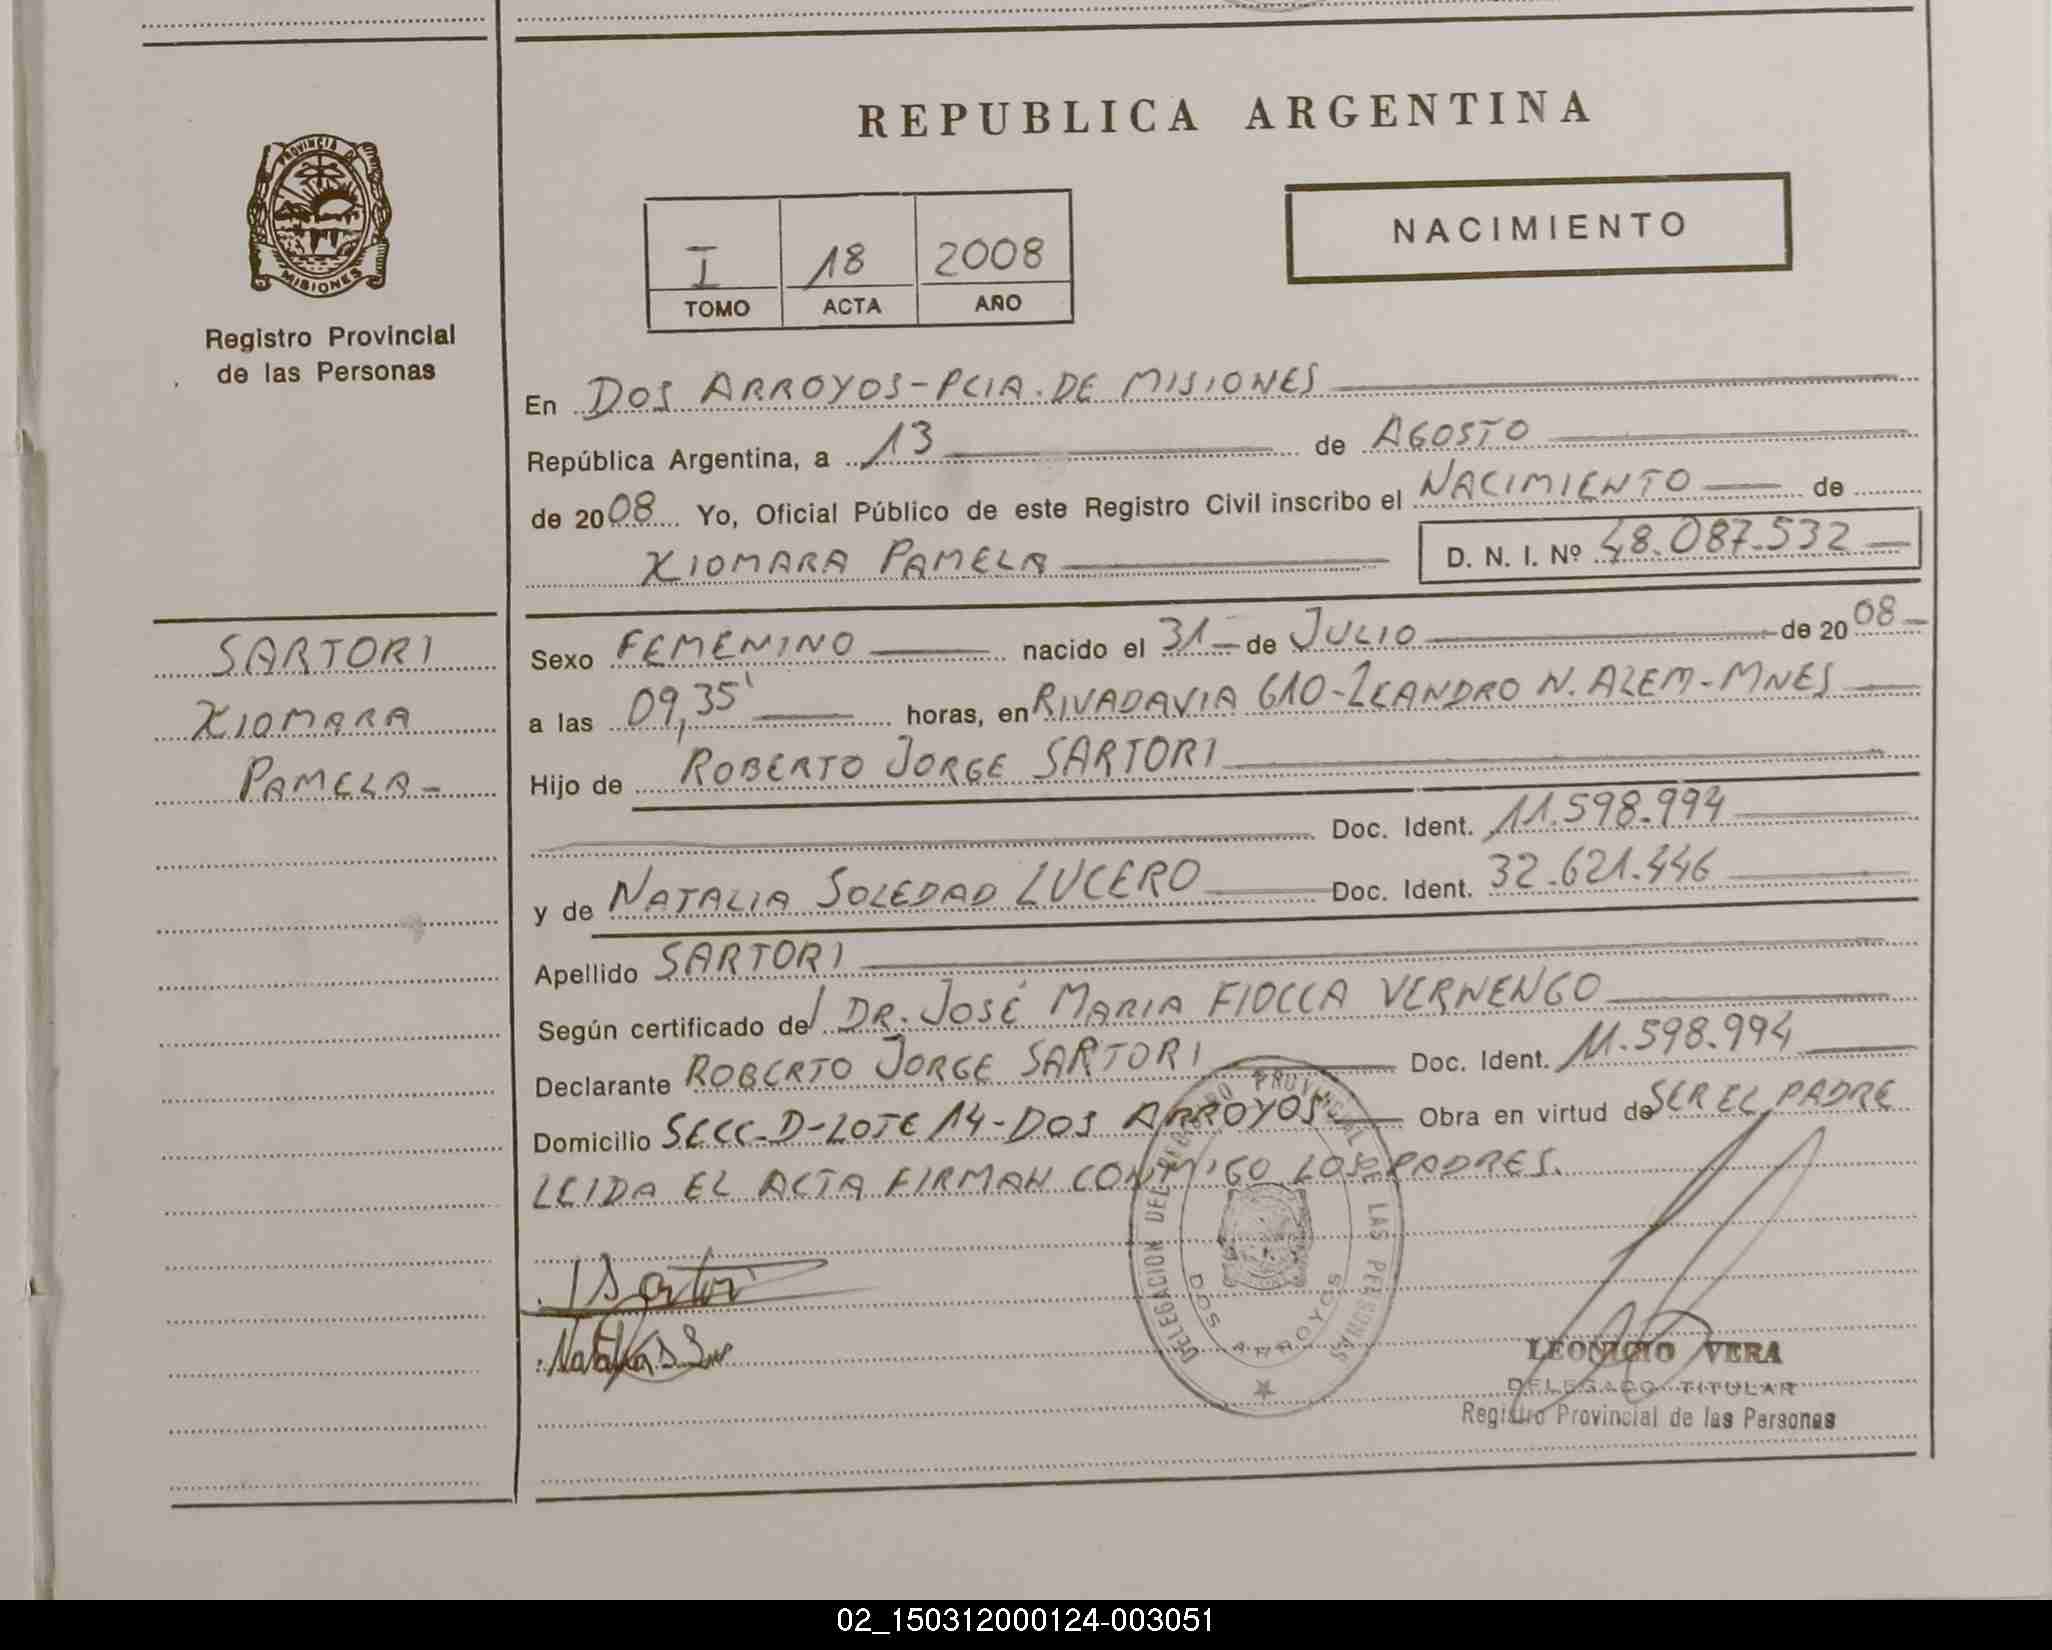 REPUBLICA ARGENTINA
NACIMIENTO
PROVINCIA DE
MISIONES
Registro Provincial
de las Personas
I 18 2008
TOMO ACTA AÑO
En DOS ARROYOS-PCIA. DE MISIONES
República Argentina, a 13 de AGOSTO
de 2008 Yo, Oficial Público de este Registro Civil inscribo el NACIMIENTO de
XIOMARA PAMELA D. N. I. Nº 48.087.532
SARTORI
XIOMARA
PAMELA-
Sexo FEMENINO nacido el 31 de JULIO de 2008
a las 09,35' horas, en RIVADAVIA 610-LEANDRO N. ALEM-MNES
Hijo de ROBERTO JORGE SARTORI
Doc. Ident. 11.598.994
y de NATALIA SOLEDAD LUCERO Doc. Ident. 32.621.446
Apellido SARTORI
Según certificado del DR. JOSÉ MARIA FIOCCA VERNENGO
Declarante ROBERTO JORGE SARTORI Doc. Ident. 11.598.994
Domicilio SECC-D-LOTE 14-DOS ARROYOS Obra en virtud de SER EL PADRE
LEIDA EL ACTA FIRMAN CONMIGO LOS PADRES.
DELEGACION DEL REGISTRO PROVINCIAL DE LAS PERSONAS
DOS ARROYOS
Sartori
LEONICIO VERA
DELEGADO TITULAR
Registro Provincial de las Personas
02_150312000124-003051